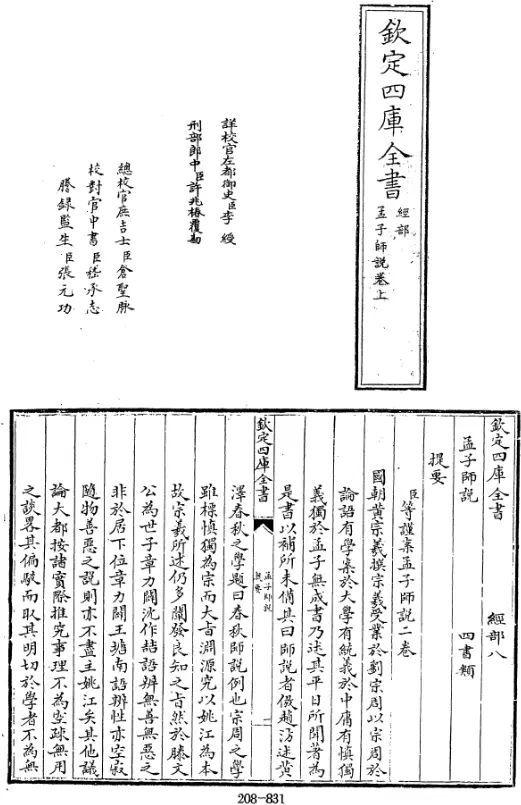 欽定四庫全書
經部
孟子師說卷上
詳校官左都御史臣李綬
刑部郎中臣許兆椿覆勘
總校官庶吉士臣倉聖脉
校對官中書臣嵇承志
謄錄監生臣張元功
欽定四庫全書 經部八
孟子師說 四書類
提要
臣等謹案孟子師說二卷
國朝黃宗羲撰宗羲受業於劉宗周以宗周於
論語有學案於大學有統義於中庸有慎獨
義獨於孟子無成書乃述其平日所聞著為
是書以補所未備其曰師說者倣趙汸述黃
欽定四庫全書
孟子師說
提要
一
澤春秋之學題曰春秋師說例也宗周之學
雖標慎獨為宗而大旨淵源究以姚江為本
故宗羲所述仍多闡發良知之旨然於滕文
公為世子章力闢沈作喆語辨無善無惡之
非於居下位章力闢王塘南語辨性亦空寂
隨物善惡之說則亦不盡主姚江矣其他議
論大都按諸實際推究事理不為空疎無用
之談畧其偏駁而取其明切於學者不為無
208-831